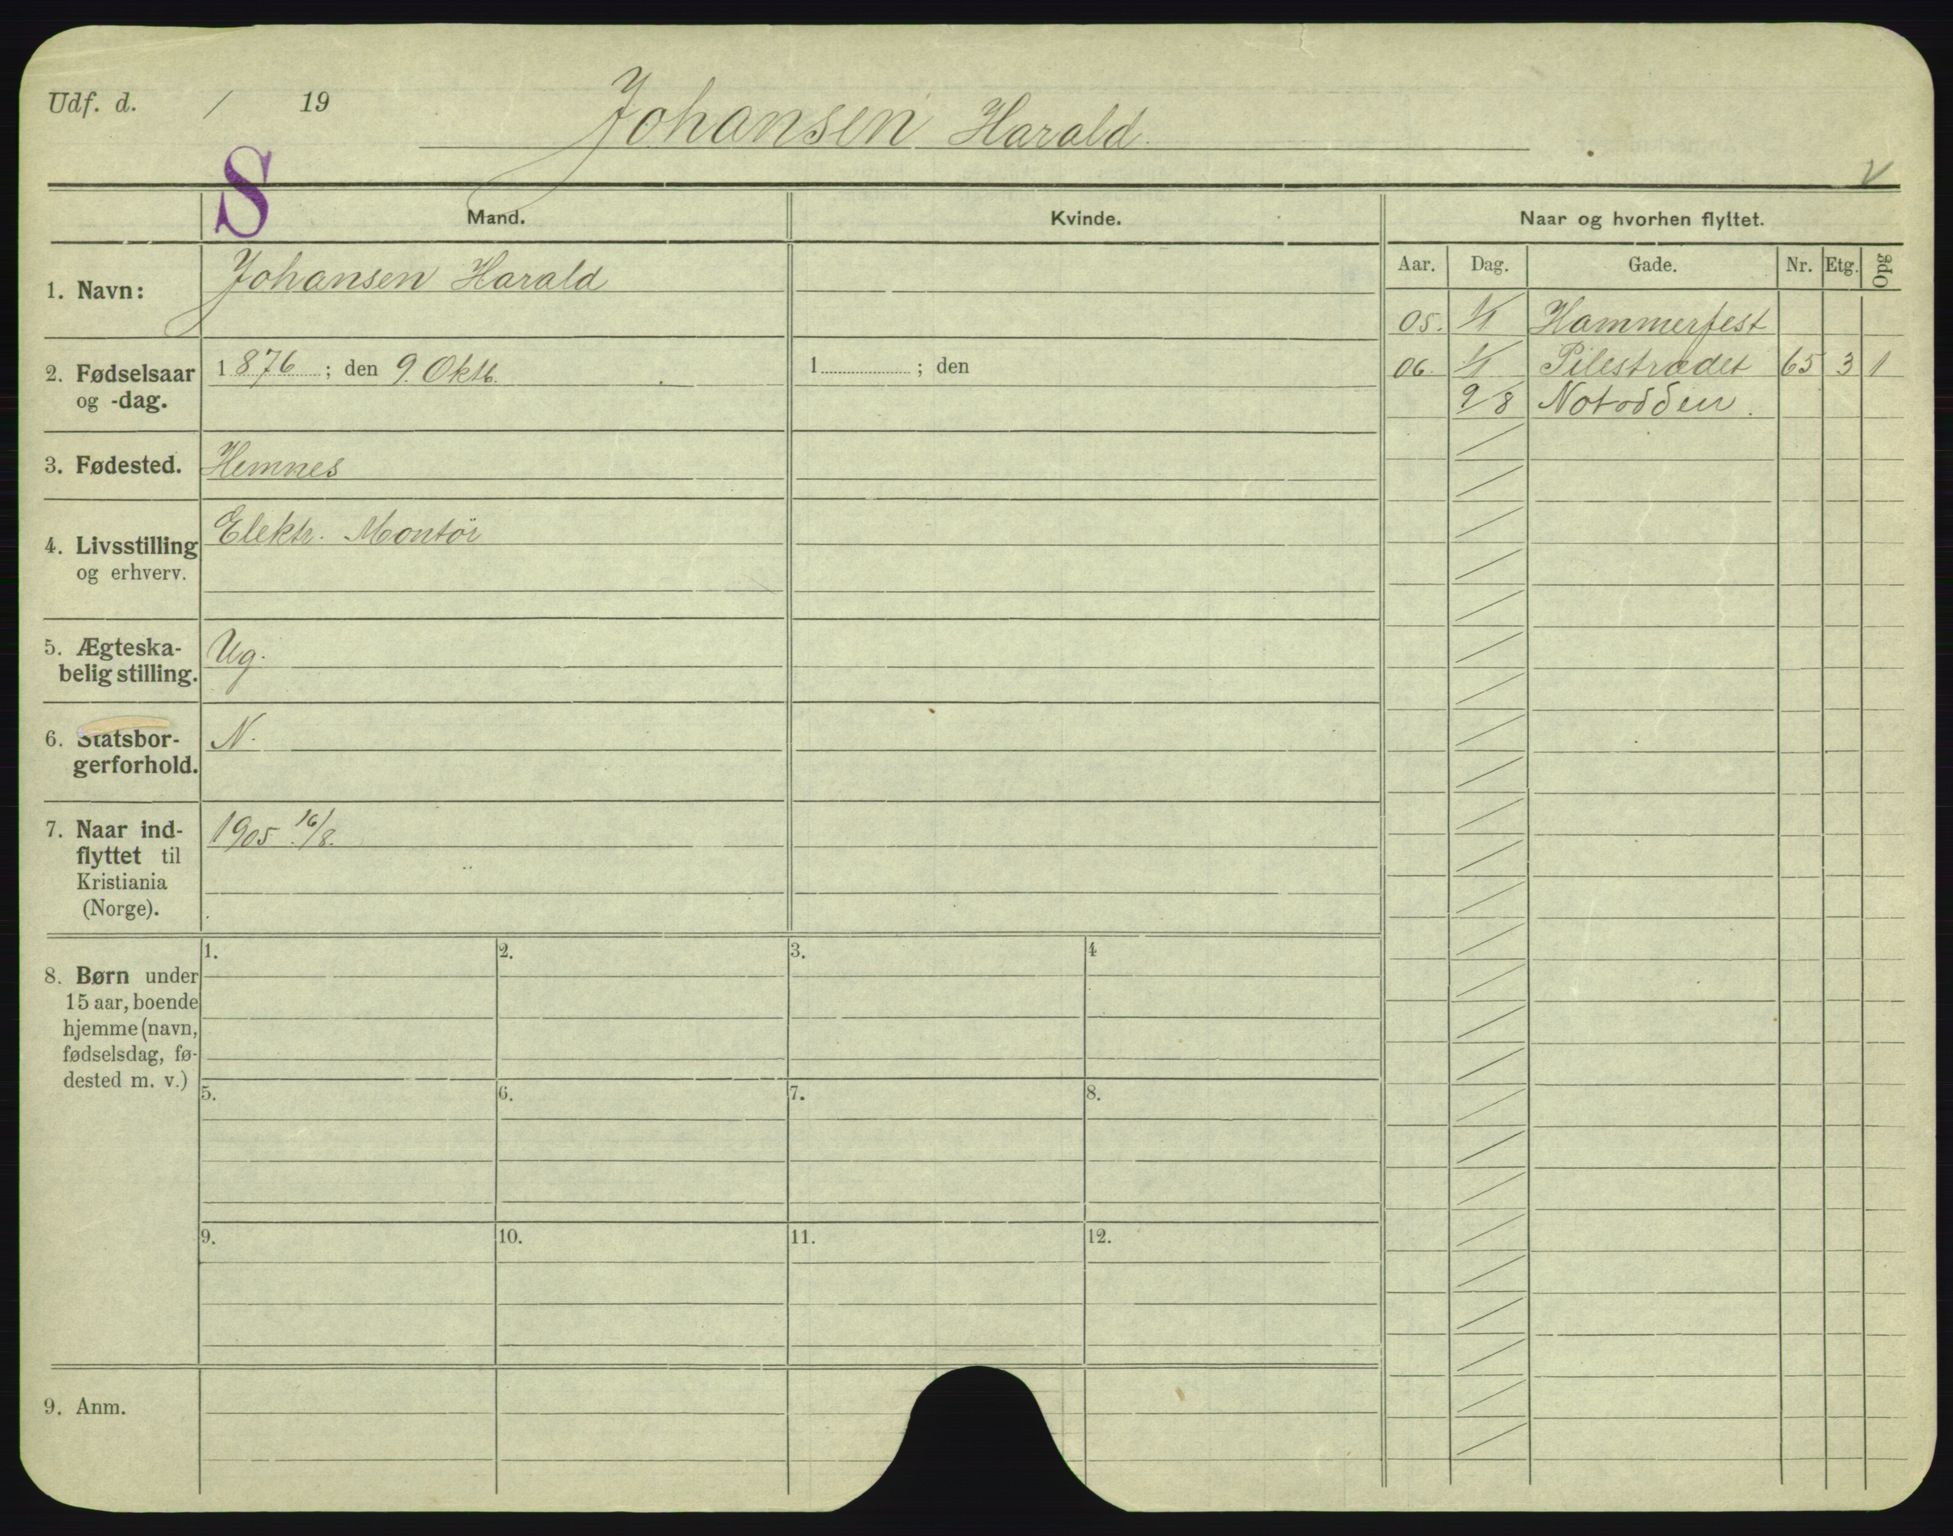 Udf. d. / 19
Johansen Harald
S
V
Mand. Kvinde. Naar og hvorhen flyttet.
Aar. Dag. Gade. Nr. Etg. Opg
1. Navn: Johansen Harald
05. 1/1 Hammerfest
2. Fødselsaar
og -dag.
1876 ; den 9. Oktb. 1 ; den
06. 1/1 Pilestrædet 65 3 1
9/8 Notodden.
3. Fødested. Hemnes
4. Livsstilling
og erhverv.
Elektr. Montör
5. Ægteska-
belig stilling.
Ug.
6. Statsbor-
gerforhold.
N.
7. Naar ind-
flyttet til
Kristiania
(Norge).
1905 16/8.
8. Børn under
15 aar, boende
hjemme (navn,
fødselsdag, fø-
dested m. v.)
1. 2. 3. 4
5. 6. 7. 8.
9. 10. 11. 12.
9. Anm.